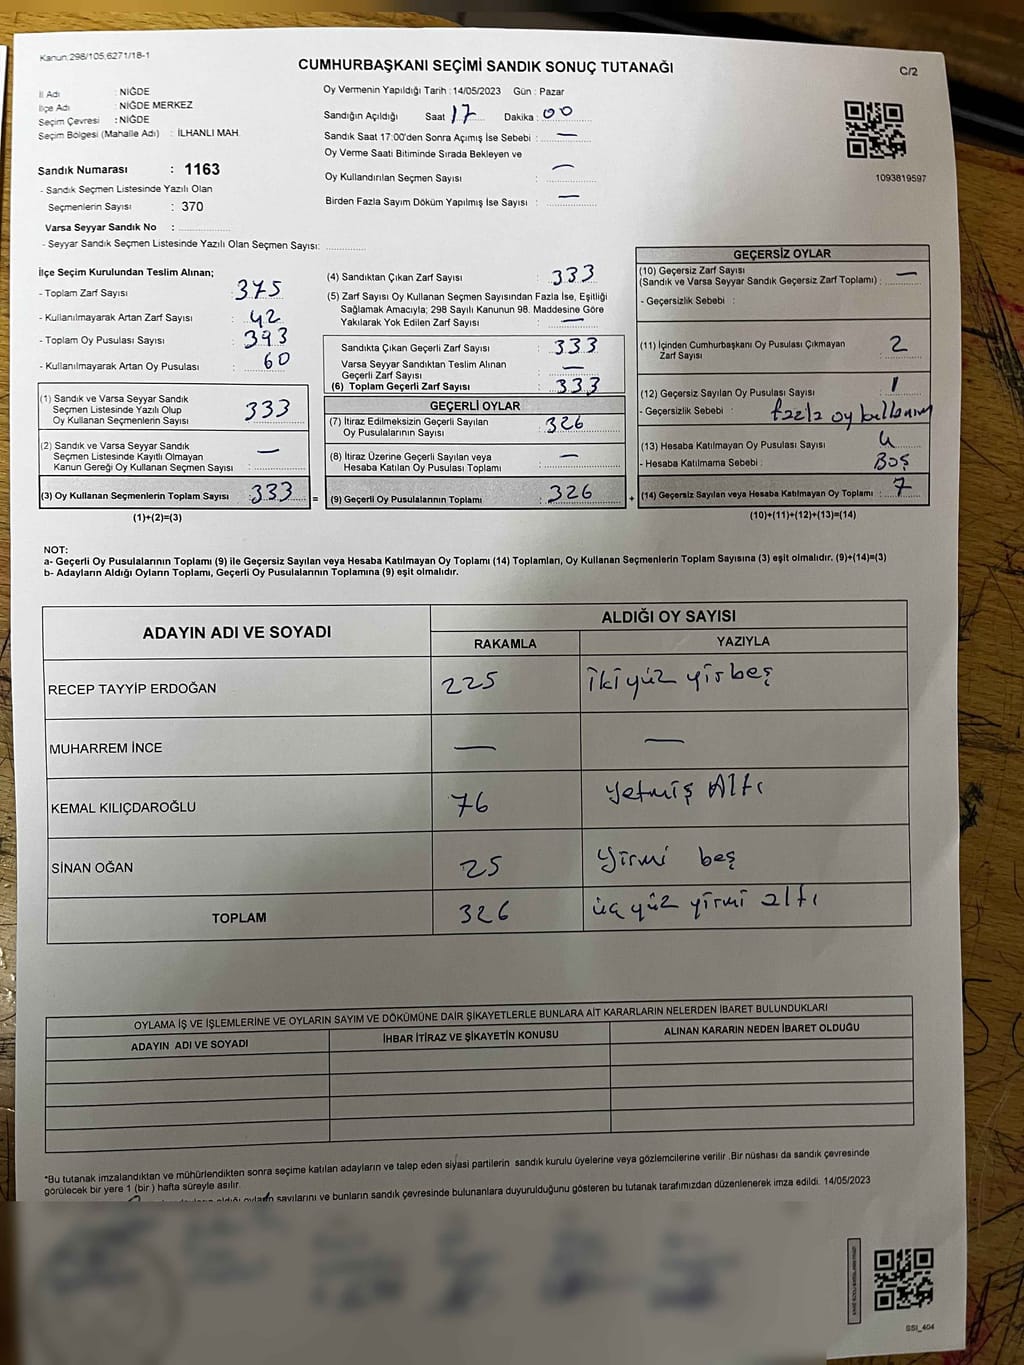 Kanun:298/105,6271/18-1
CUMHURBAŞKANI SEÇİMİ SANDIK SONUÇ TUTANAĞI
C/2
İl Adı : NİĞDE
İlçe Adı : NİĞDE MERKEZ
Seçim Çevresi : NİĞDE
Seçim Bölgesi (Mahalle Adı) : İLHANLI MAH.
Sandık Numarası : 1163
- Sandık Seçmen Listesinde Yazılı Olan
Seçmenlerin Sayısı : 370
Varsa Seyyar Sandık No :
- Seyyar Sandık Seçmen Listesinde Yazılı Olan Seçmen Sayısı:
Oy Vermenin Yapıldığı Tarih : 14/05/2023 Gün : Pazar
Sandığın Açıldığı Saat 17 Dakika : 00
Sandık Saat 17:00'den Sonra Açımış İse Sebebi : —
Oy Verme Saati Bitiminde Sırada Bekleyen ve
Oy Kullandırılan Seçmen Sayısı : —
Birden Fazla Sayım Döküm Yapılmış İse Sayısı : —
1093819597
İlçe Seçim Kurulundan Teslim Alınan;
- Toplam Zarf Sayısı : 375
- Kullanılmayarak Artan Zarf Sayısı : 42
- Toplam Oy Pusulası Sayısı : 393
- Kullanılmayarak Artan Oy Pusulası : 60
(1) Sandık ve Varsa Seyyar Sandık
Seçmen Listesinde Yazılı Olup
Oy Kullanan Seçmenlerin Sayısı : 333
(2) Sandık ve Varsa Seyyar Sandık
Seçmen Listesinde Kayıtlı Olmayan
Kanun Gereği Oy Kullanan Seçmen Sayısı : —
(3) Oy Kullanan Seçmenlerin Toplam Sayısı : 333 =
(1)+(2)=(3)
(4) Sandıktan Çıkan Zarf Sayısı : 333
(5) Zarf Sayısı Oy Kullanan Seçmen Sayısından Fazla İse, Eşitliği
Sağlamak Amacıyla; 298 Sayılı Kanunun 98. Maddesine Göre
Yakılarak Yok Edilen Zarf Sayısı : —
Sandıkta Çıkan Geçerli Zarf Sayısı : 333
Varsa Seyyar Sandıktan Teslim Alınan
Geçerli Zarf Sayısı : —
(6) Toplam Geçerli Zarf Sayısı : 333
GEÇERLİ OYLAR
(7) İtiraz Edilmeksizin Geçerli Sayılan
Oy Pusulalarının Sayısı : 326
(8) İtiraz Üzerine Geçerli Sayılan veya
Hesaba Katılan Oy Pusulası Toplamı : —
(9) Geçerli Oy Pusulalarının Toplamı : 326 +
GEÇERSİZ OYLAR
(10) Geçersiz Zarf Sayısı
(Sandık ve Varsa Seyyar Sandık Geçersiz Zarf Toplamı) : —
- Geçersizlik Sebebi :
(11) İçinden Cumhurbaşkanı Oy Pusulası Çıkmayan
Zarf Sayısı : 2
(12) Geçersiz Sayılan Oy Pusulası Sayısı : 1
- Geçersizlik Sebebi : fazla oy kullanım
(13) Hesaba Katılmayan Oy Pusulası Sayısı : 4
- Hesaba Katılmama Sebebi : BOŞ
(14) Geçersiz Sayılan veya Hesaba Katılmayan Oy Toplamı : 7
(10)+(11)+(12)+(13)=(14)
NOT:
a- Geçerli Oy Pusulalarının Toplamı (9) ile Geçersiz Sayılan veya Hesaba Katılmayan Oy Toplamı (14) Toplamları, Oy Kullanan Seçmenlerin Toplam Sayısına (3) eşit olmalıdır. (9)+(14)=(3)
b- Adayların Aldığı Oyların Toplamı, Geçerli Oy Pusulalarının Toplamına (9) eşit olmalıdır.
ADAYIN ADI VE SOYADI
ALDIĞI OY SAYISI
RAKAMLA YAZIYLA
RECEP TAYYİP ERDOĞAN 225 ikiyüz yirbeş
MUHARREM İNCE — —
KEMAL KILIÇDAROĞLU 76 Yetmiş Altı
SİNAN OĞAN 25 Yirmi beş
TOPLAM 326 üçyüz yirmi altı
OYLAMA İŞ VE İŞLEMLERİNE VE OYLARIN SAYIM VE DÖKÜMÜNE DAİR ŞİKAYETLERLE BUNLARA AİT KARARLARIN NELERDEN İBARET BULUNDUKLARI
ADAYIN ADI VE SOYADI İHBAR İTİRAZ VE ŞİKAYETİN KONUSU ALINAN KARARIN NEDEN İBARET OLDUĞU
*Bu tutanak imzalandıktan ve mühürlendikten sonra seçime katılan adayların ve talep eden siyasi partilerin sandık kurulu üyelerine veya gözlemcilerine verilir .Bir nüshası da sandık çevresinde
görülecek bir yere 1 (bir ) hafta süreyle asılır.
aldığı oyların sayılarını ve bunların sandık çevresinde bulunanlara duyurulduğunu gösteren bu tutanak tarafımızdan düzenlenerek imza edildi. 14/05/2023
SSI_404